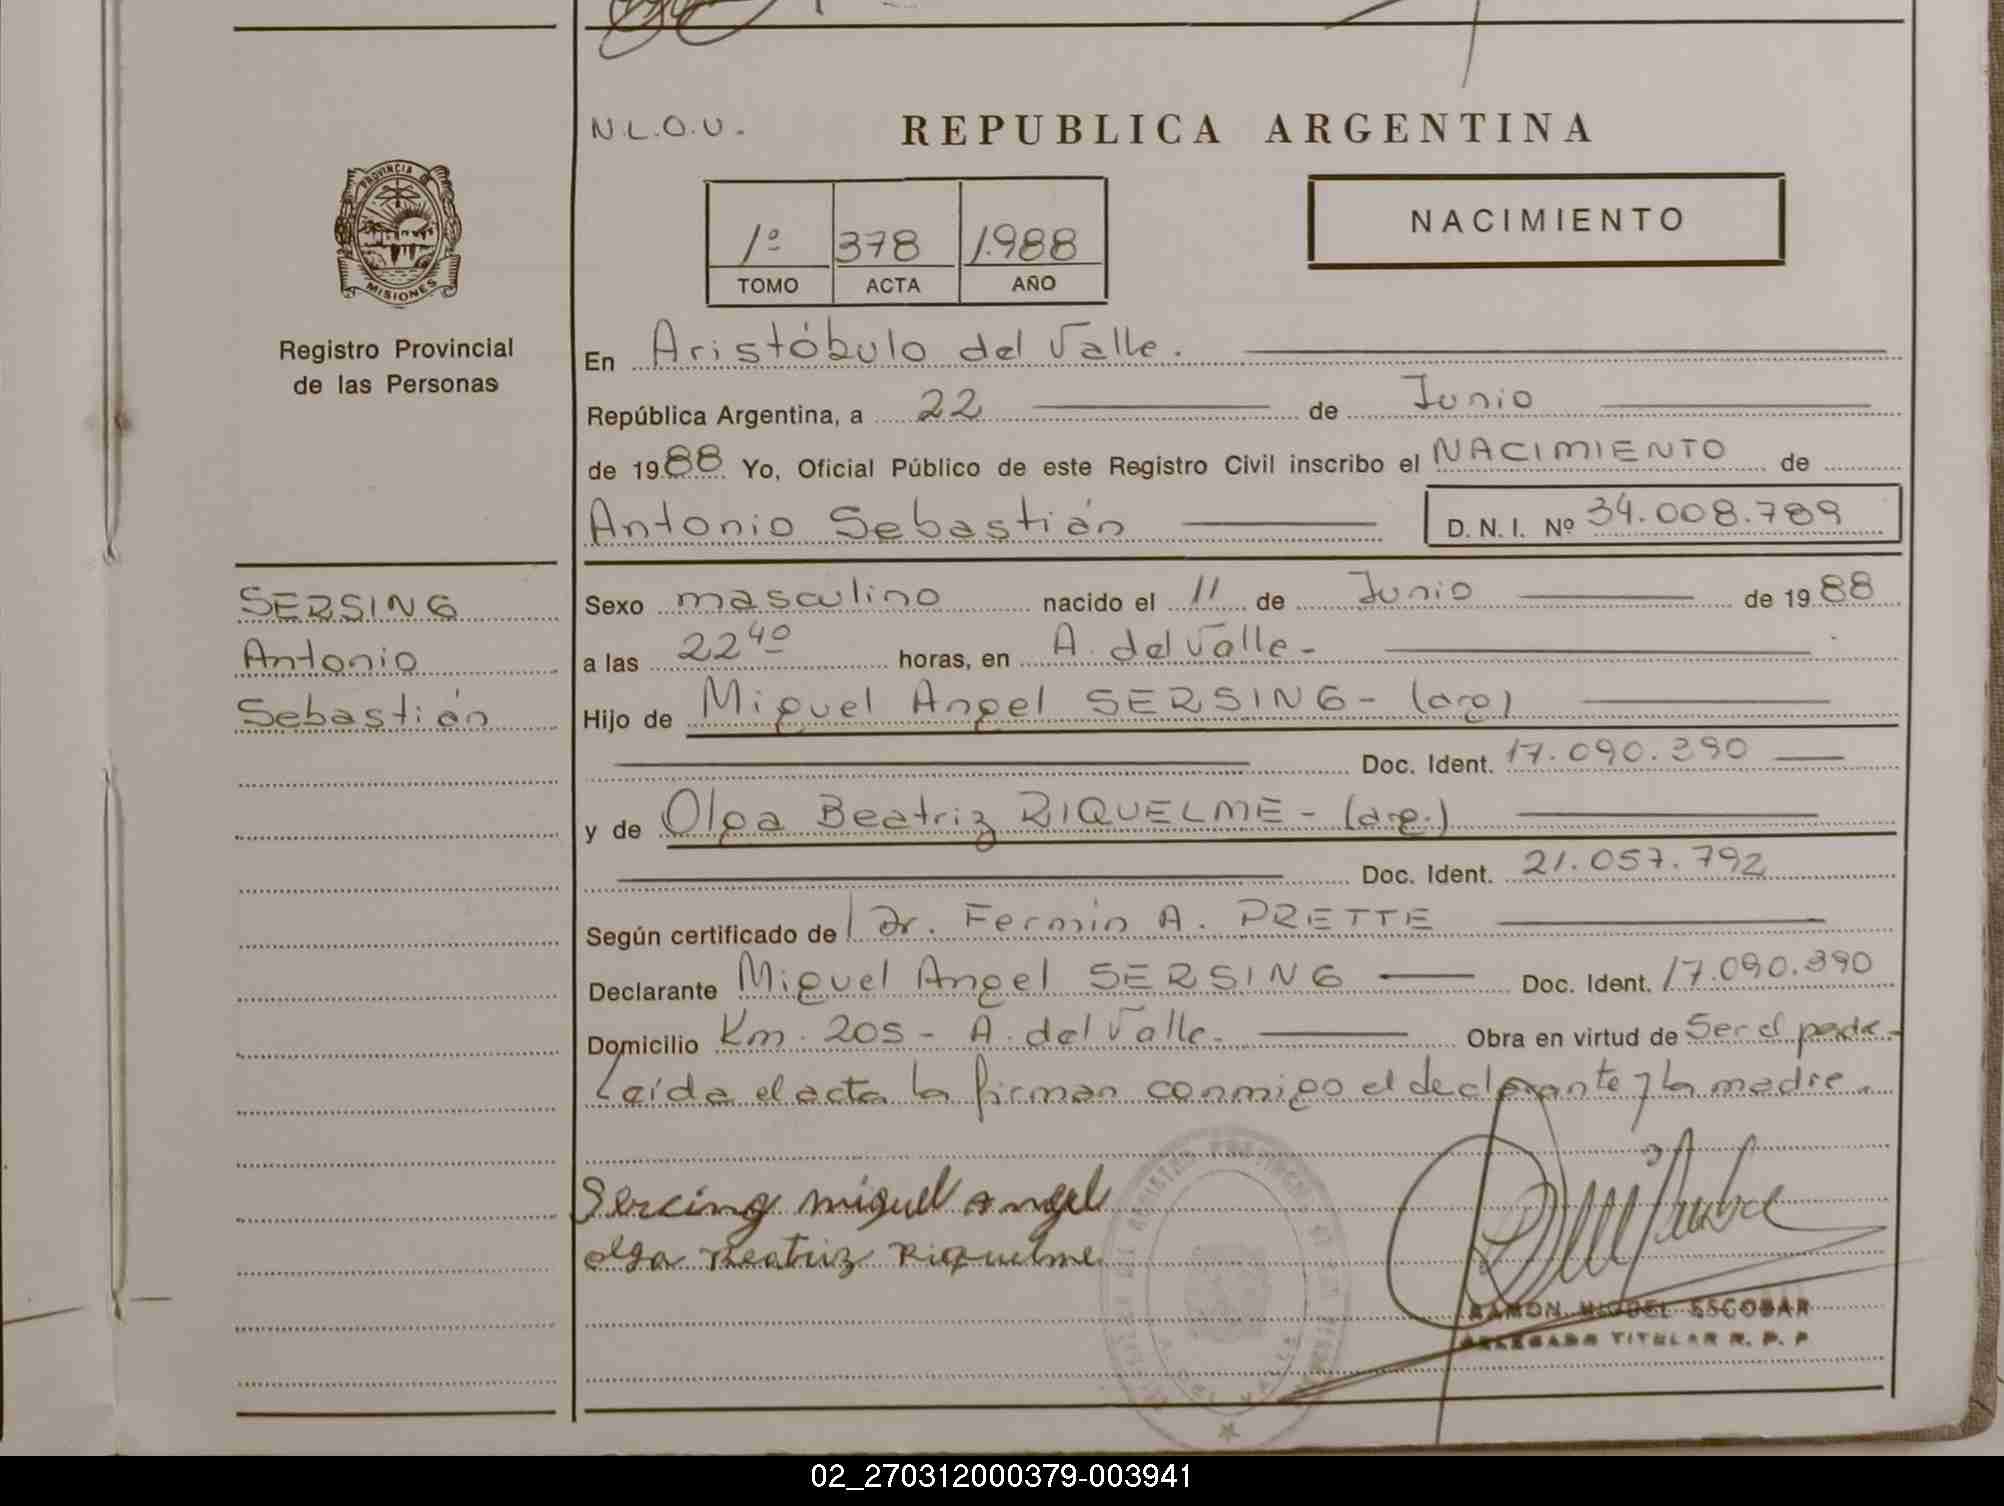 N.L.O.U.
REPUBLICA ARGENTINA
PROVINCIA DE
MISIONES
Registro Provincial
de las Personas
1º 378 1.988
TOMO ACTA AÑO
NACIMIENTO
En Aristóbulo del Valle.
República Argentina, a 22 de Junio
de 1988 Yo, Oficial Público de este Registro Civil inscribo el NACIMIENTO de
Antonio Sebastián D. N. I. Nº 34.008.789
SERSING
Antonio
Sebastián
Sexo masculino nacido el 11 de Junio de 1988
a las 22 40 horas, en A. del Valle -
Hijo de Miguel Angel SERSING - (arg)
Doc. Ident. 17.090.390
y de Olga Beatriz RIQUELME - (arg.)
Doc. Ident. 21.057.792
Según certificado de Dr. Fermin A. PRETTE
Declarante Miguel Angel SERSING Doc. Ident. 17.090.390
Domicilio Km. 205 - A. del Valle. Obra en virtud de Ser el padre.-
Leída el acta la firman conmigo el declarante y la madre.
Sercing miguel angel
olga Beatriz Riquelme
RAMON MIGUEL ESCOBAR
DELEGADO TITULAR R. P. P
02_270312000379-003941